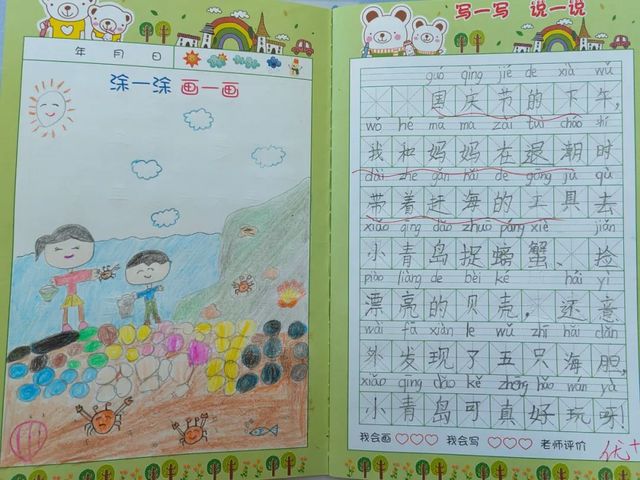 年 月 日
涂一涂 画一画
写一写 说一说
guó qìng jié de xià wǔ
国庆节的下午,
wǒ hé mā ma zài tuì cháo shí
我和妈妈在退潮时
dài zhe gǎn hǎi de gōng jù qù
带着赶海的工具去
xiǎo qīng dǎo zhuō páng xiè jiǎn
小青岛捉螃蟹、捡
piào liàng de bèi ké hái yì
漂亮的贝壳,还意
wài fā xiàn le wǔ zhī hǎi dǎn
外发现了五只海胆,
xiǎo qīng dǎo kě zhēn hǎo wán yā
小青岛可真好玩呀!
我会画♡♡♡ 我会写♡♡♡ 老师评价 优+